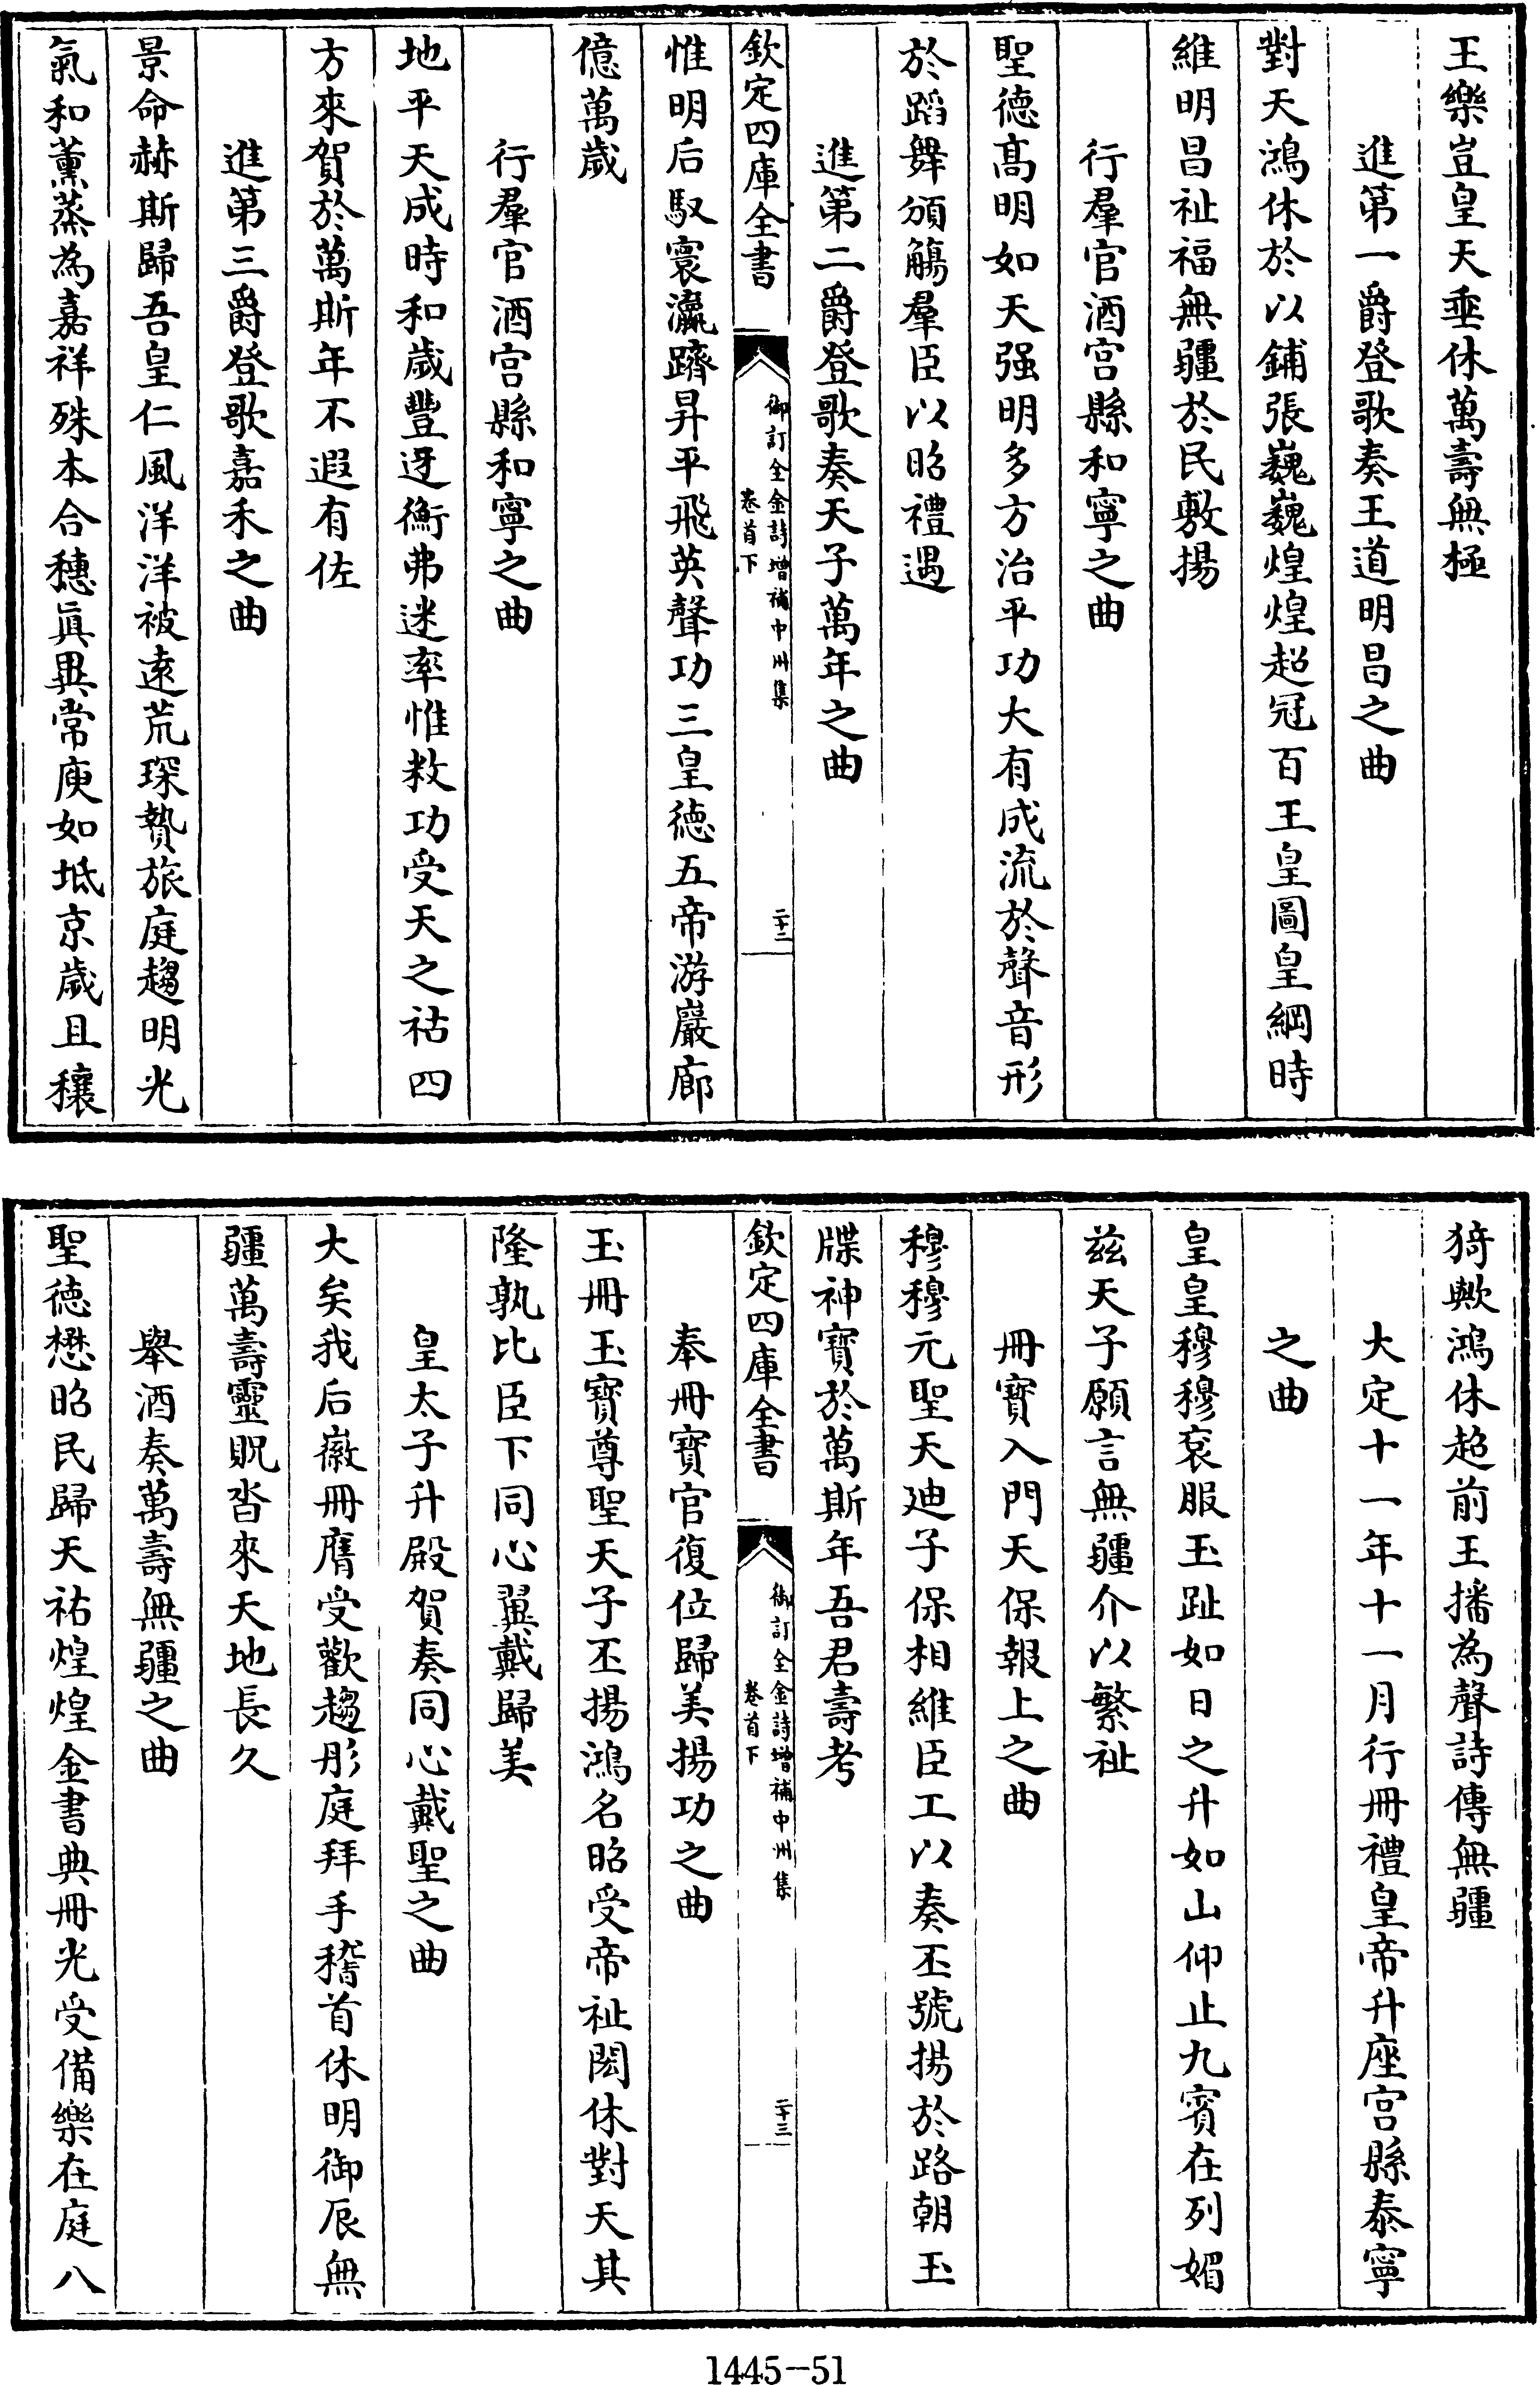 王樂豈皇天垂休萬壽無極
進第一爵登歌奏王道明昌之曲
對天鴻休於以鋪張巍巍煌煌超冠百王皇圖皇綱時
維明昌祉福無疆於民敷揚
行羣官酒宫縣和寧之曲
聖德髙明如天强明多方治平功大有成流於聲音形
於蹈舞頒觴羣臣以昭禮遇
進第二爵登歌奏天子萬年之曲
欽定四庫全書
御訂全金詩增補中州集
卷首下
二十二
惟明后馭寰瀛躋昇平飛英聲功三皇德五帝游巖廊
億萬歲
行羣官酒宫縣和寧之曲
地平天成時和歲豐迓衡弗迷率惟敉功受天之祜四
方來賀於萬斯年不遐有佐
進第三爵登歌嘉禾之曲
景命赫斯歸吾皇仁風洋洋被逺荒琛贄旅庭趨明光
氣和薰蒸為嘉祥殊本合穗眞異常庾如坻京歲且穰
猗歟鴻休超前王播為聲詩傳無疆
大定十一年十一月行冊禮皇帝升座宫縣泰寧
之曲
皇皇穆穆衮服玉趾如日之升如山仰止九賓在列媚
兹天子願言無疆介以繁祉
冊寶入門天保報上之曲
穆穆元聖天迪子保相維臣工以奏丕號揚於路朝玉
牒神寶於萬斯年吾君壽考
奉冊寶官復位歸美揚功之曲
欽定四庫全書
御訂全金詩增補中州集
卷首下
二十三
玉冊玉寶尊聖天子丕揚鴻名昭受帝祉閎休對天其
隆孰比臣下同心翼戴歸美
皇太子升殿賀奏同心戴聖之曲
大矣我后徽冊膺受歡趨彤庭拜手稽首休明御辰無
疆萬壽靈貺沓來天地長久
舉酒奏萬壽無疆之曲
聖德懋昭民歸天祐煌煌金書典冊光受備樂在庭八
1445-51